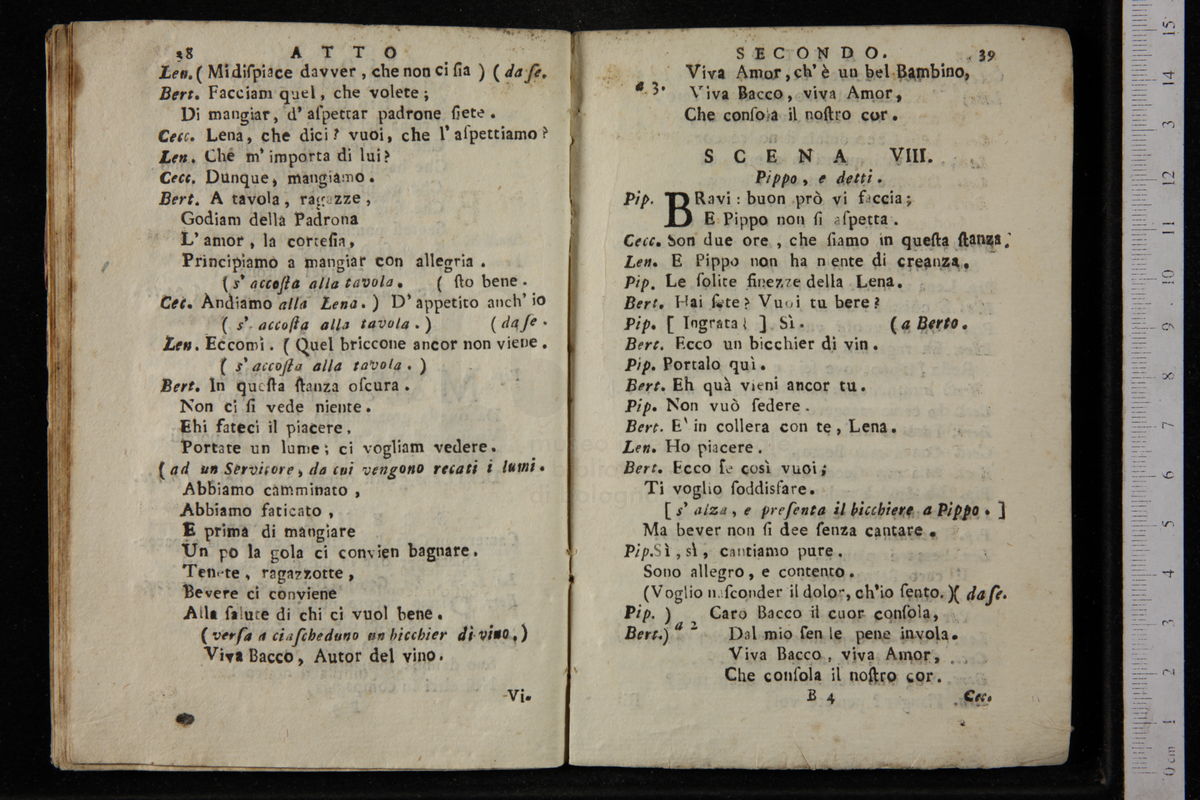 38 ATTO
Len. ( Mi diſpiace davver , che non ci ſia ) ( da ſe.
Bert. Facciam quel, che volete ;
Di mangiar, d' aſpettar padrone ſiete .
Cecc. Lena, che dici ? vuoi, che l' aſpettiamo ?
Len. Che m' importa di lui ?
Cecc. Dunque, mangiamo .
Bert. A tavola , ragazze ,
Godiam della Padrona
L' amor , la corteſia ,
Principiamo a mangiar con allegria .
( s' accoſta alla tavola . ( ſto bene .
Cec. Andiamo alla Lena . ) D' appetito anch' io
( s' accoſta alla tavola . ) ( da ſe .
Len. Eccomi . ( Quel briccone ancor non viene .
( s' accoſta alla tavola . )
Bert. In queſta ſtanza oſcura .
Non ci ſi vede niente .
Ehi fateci il piacere ,
Portate un lume ; ci vogliam vedere .
( ad un Servitore , da cui vengono recati i lumi .
Abbiamo camminato ,
Abbiamo faticato ,
E prima di mangiare
Un po la gola ci convien bagnare .
Tenete , ragazzotte ,
Bevere ci conviene
Alla ſalute di chi ci vuol bene .
( verſa a ciaſcheduno un bicchier di vino . )
Viva Bacco , Autor del vino .
Vi-
SECONDO. 39
Viva Amor , ch' è un bel Bambino,
a 3. Viva Bacco , viva Amor ,
Che conſola il noſtro cor .
SCENA VIII.
Pippo , e detti .
Pip. BRavi : buon prò vi faccia ;
E Pippo non ſi aſpetta .
Cecc. Son due ore , che ſiamo in queſta ſtanza .
Len. E Pippo non ha niente di creanza .
Pip. Le ſolite finezze della Lena .
Bert. Hai ſete ? Vuoi tu bere ?
Pip. [ Ingrata ! ] Sì . ( a Berto .
Bert. Ecco un bicchier di vin .
Pip. Portalo quì .
Bert. Eh quà vieni ancor tu .
Pip. Non vuò ſedere .
Bert. E' in collera con te , Lena .
Len. Ho piacere .
Bert. Ecco ſe così vuoi ;
Ti voglio ſoddisfare .
[ s' alza , e preſenta il bicchiere a Pippo . ]
Ma bever non ſi dee ſenza cantare .
Pip. Sì , sì , cantiamo pure .
Sono allegro , e contento .
(Voglio naſconder il dolor, ch'io ſento. )( da ſe.
Pip. ) Caro Bacco il cuor conſola ,
Bert.) a 2 Dal mio ſen le pene invola .
Viva Bacco , viva Amor ,
Che conſola il noſtro cor .
B 4 Cec.